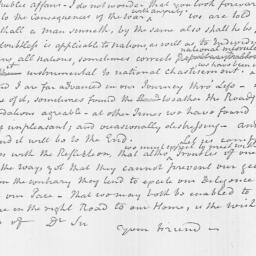 public affair. I do not wonder that you look forward
with anxiety
to the Consequences of the War. we are told
shall a man sinneth, by the same also shall he be
doubtless is applicable to nations, as well as to Individ
national
all nations, sometimes correct
we have been
instrumental to national chastisement.
and I am far advanced in our Journey thro' Life
of it, sometimes found the Weather & the Roads
dations agreeable - at other Times we have found
unpleasant, and occasionally distressing - and
and it will be to the End. Let us comf
we must expect to meet with
with the Reflection, that altho' Troubles of one
the way, yet that they cannot prevent our get
on the contrary they tend to excite our Diligence
our Pace - That we may both be enabled to
in the right Road to our Home, is the Wish
of Dr Sir
Your Friend